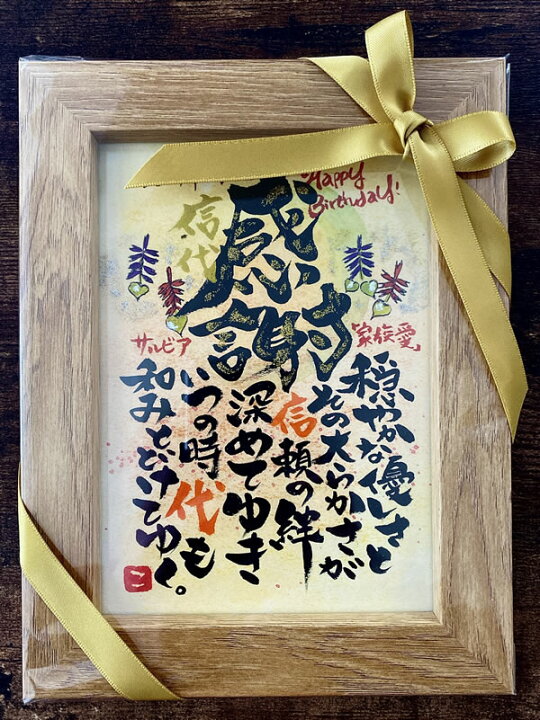 Happy
Birthday!
感謝
信代
家族愛
サルビア
穏やかな優しさと
その大らかさが
信頼の絆
深めてゆき
いつの時代も
和みとどけてゆく。